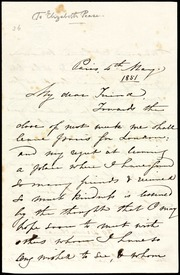 (To Elizabeth Pease.
Paris 4th May.
1841
My dear Friend
Towards the
close of next week we shall
leave Paris for London,
and my regret at leaving
a place where I have found
so many friends & received
so much kindness is lessened
by the thoughts that I may
hope soon to meet with
others whom I have so
many motives to see & whom